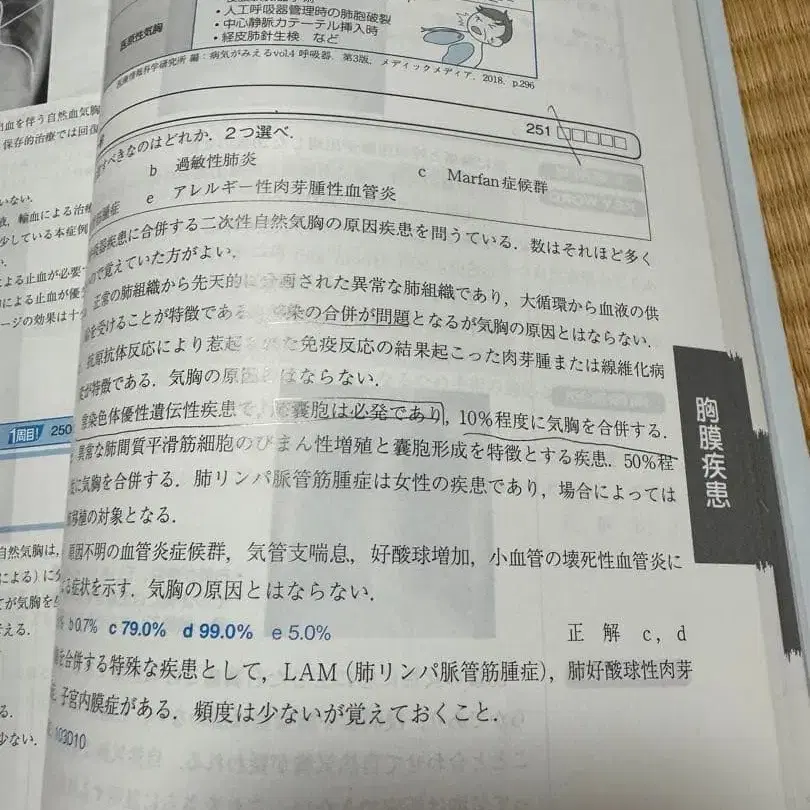 ・人工呼吸器管理時の肺胞破裂
・中心静脈カテーテル挿入時
・経皮肺針生検 など
医原性気胸
医療情報科学研究所 編：病気がみえるvol.4 呼吸器．第3版，メディックメディア，2018．p.296
251 □□□□□
すべきなのはどれか．2つ選べ．
b 過敏性肺炎
c Marfan症候群
e アレルギー性肉芽腫性血管炎
疾患に合併する二次性自然気胸の原因疾患を問うている．数はそれほど多く
ので覚えていた方がよい．
正常の肺組織から先天的に分画された異常な肺組織であり，大循環から血液の供
を受けることが特徴である．感染の合併が問題となるが気胸の原因とはならない．
抗原抗体反応により惹起された免疫反応の結果起こった肉芽腫または線維化病
が特徴である．気胸の原因とはならない．
染色体優性遺伝性疾患で，嚢胞は必発であり，10％程度に気胸を合併する．
異常な肺間質平滑筋細胞のびまん性増殖と嚢胞形成を特徴とする疾患．50％程
に気胸を合併する．肺リンパ脈管筋腫症は女性の疾患であり，場合によっては
移植の対象となる．
原因不明の血管炎症候群，気管支喘息，好酸球増加，小血管の壊死性血管炎に
る症状を示す．気胸の原因とはならない．
b 0.7% c 79.0% d 99.0% e 5.0%
正解 c，d
を合併する特殊な疾患として，LAM（肺リンパ脈管筋腫症），肺好酸球性肉芽
子宮内膜症がある．頻度は少ないが覚えておくこと．
103D10
胸膜疾患
出血を伴う自然血気胸
保存的治療では回復
いない．
液，輸血による治療
少している本症例
による止血が必要で
による止血が優
ージの効果は十分
1周目! 250
自然気胸は，
による）に分
てが気胸を
考える．
る．
少ない．